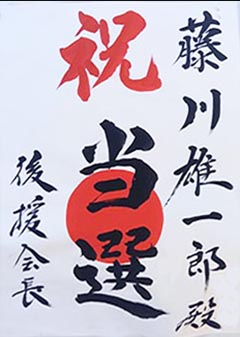 藤川雄一郎殿
祝
当選
後援会長